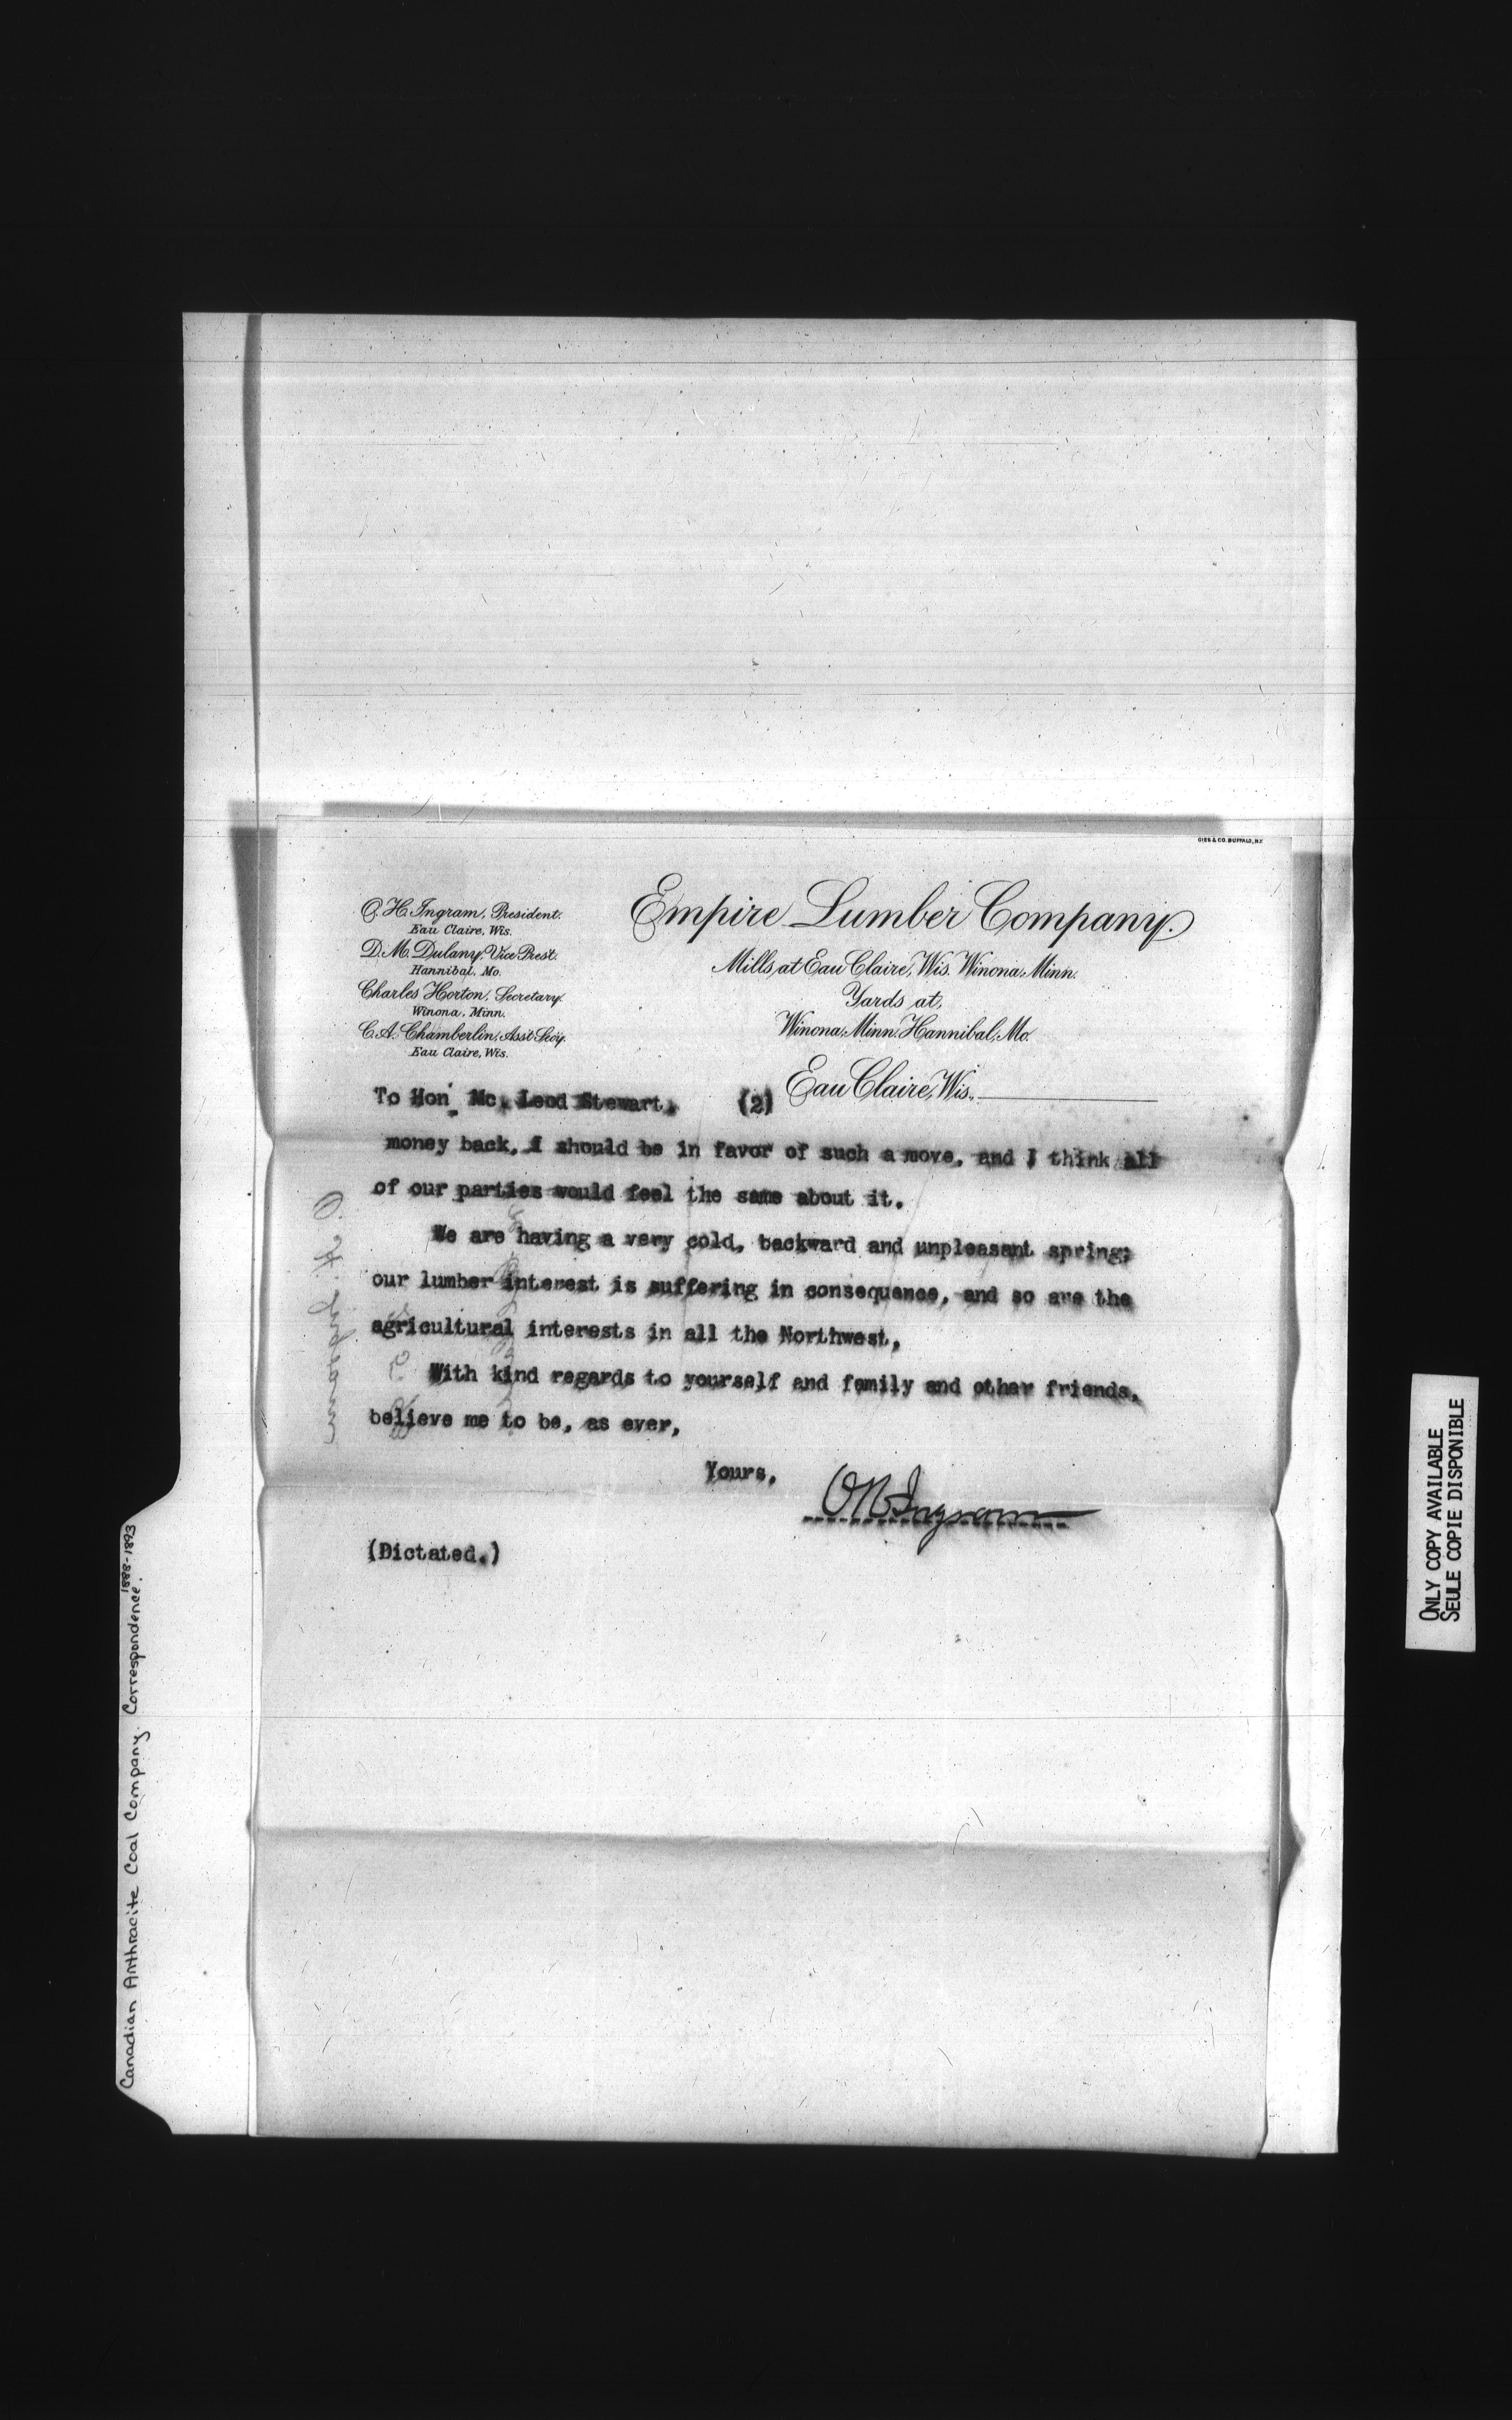 GIES & CO. BUFFALO, N.Y.
O. H. Ingram, President.
Eau Claire, Wis.
D. M. Dulany, Vice Prest.
Hannibal, Mo.
Charles Horton, Secretary.
Winona, Minn.
C. A. Chamberlin, Asst Secy.
Eau Claire, Wis.
Empire Lumber Company.
Mills at Eau Claire, Wis. Winona, Minn.
Yards at,
Winona, Minn. Hannibal, Mo.
Eau Claire, Wis.,
To Hon. Mc. Leod Stewart, (2)
money back, I should be in favor of such a move, and I think all
of our parties would feel the same about it.
We are having a very cold, backward and unpleasant spring;
our lumber interest is suffering in consequence, and so are the
agricultural interests in all the Northwest.
With kind regards to yourself and family and other friends,
believe me to be, as ever,
Yours,
O H Ingram
(Dictated.)
O. H. Ingram
Canadian Anthracite Coal Company. Correspondence. 1888-1893
ONLY COPY AVAILABLE
SEULE COPIE DISPONIBLE